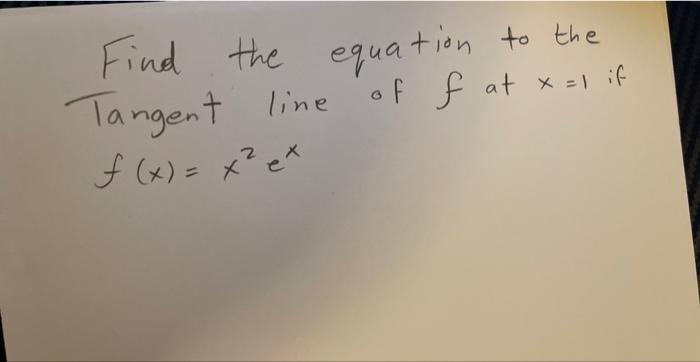 Find the equation to the
Tangent line of f at x = 1 if
f(x) = x² eˣ